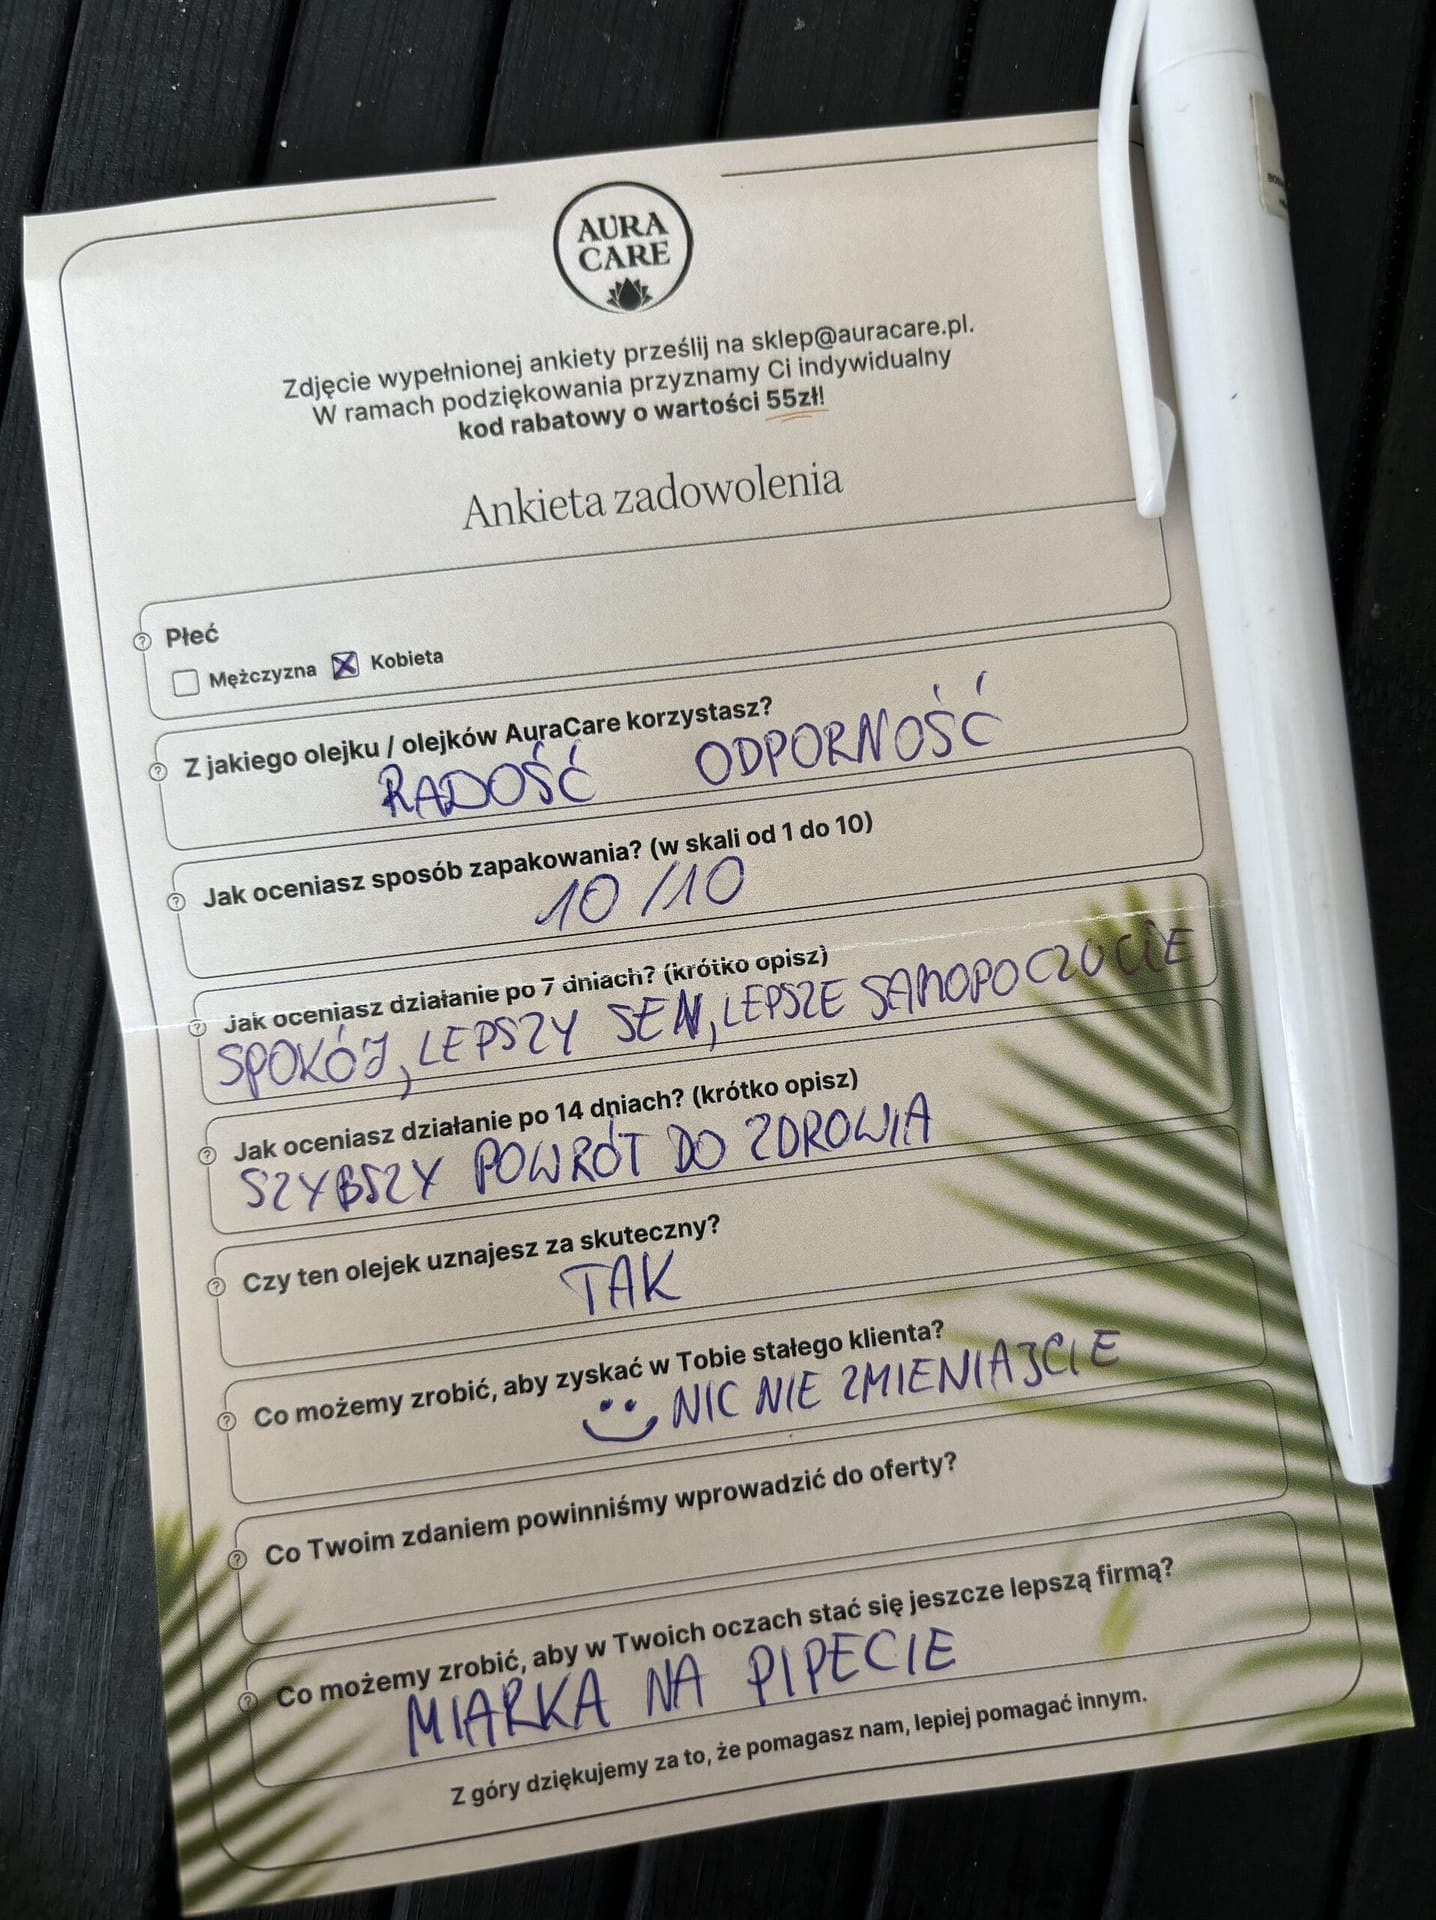 AURA
CARE
Zdjęcie wypełnionej ankiety prześlij na sklep@auracare.pl.
W ramach podziękowania przyznamy Ci indywidualny
kod rabatowy o wartości 55zł!
Ankieta zadowolenia
Płeć
Mężczyzna Kobieta
Z jakiego olejku / olejków AuraCare korzystasz?
RADOŚĆ ODPORNOŚĆ
Jak oceniasz sposób zapakowania? (w skali od 1 do 10)
10/10
Jak oceniasz działanie po 7 dniach? (krótko opisz)
SPOKÓJ, LEPSZY SEN, LEPSZE SAMOPOCZUCIE
Jak oceniasz działanie po 14 dniach? (krótko opisz)
SZYBSZY POWRÓT DO ZDROWIA
Czy ten olejek uznajesz za skuteczny?
TAK
Co możemy zrobić, aby zyskać w Tobie stałego klienta?
NIC NIE ZMIENIAJCIE
Co Twoim zdaniem powinniśmy wprowadzić do oferty?
Co możemy zrobić, aby w Twoich oczach stać się jeszcze lepszą firmą?
MIARKA NA PIPECIE
Z góry dziękujemy za to, że pomagasz nam, lepiej pomagać innym.